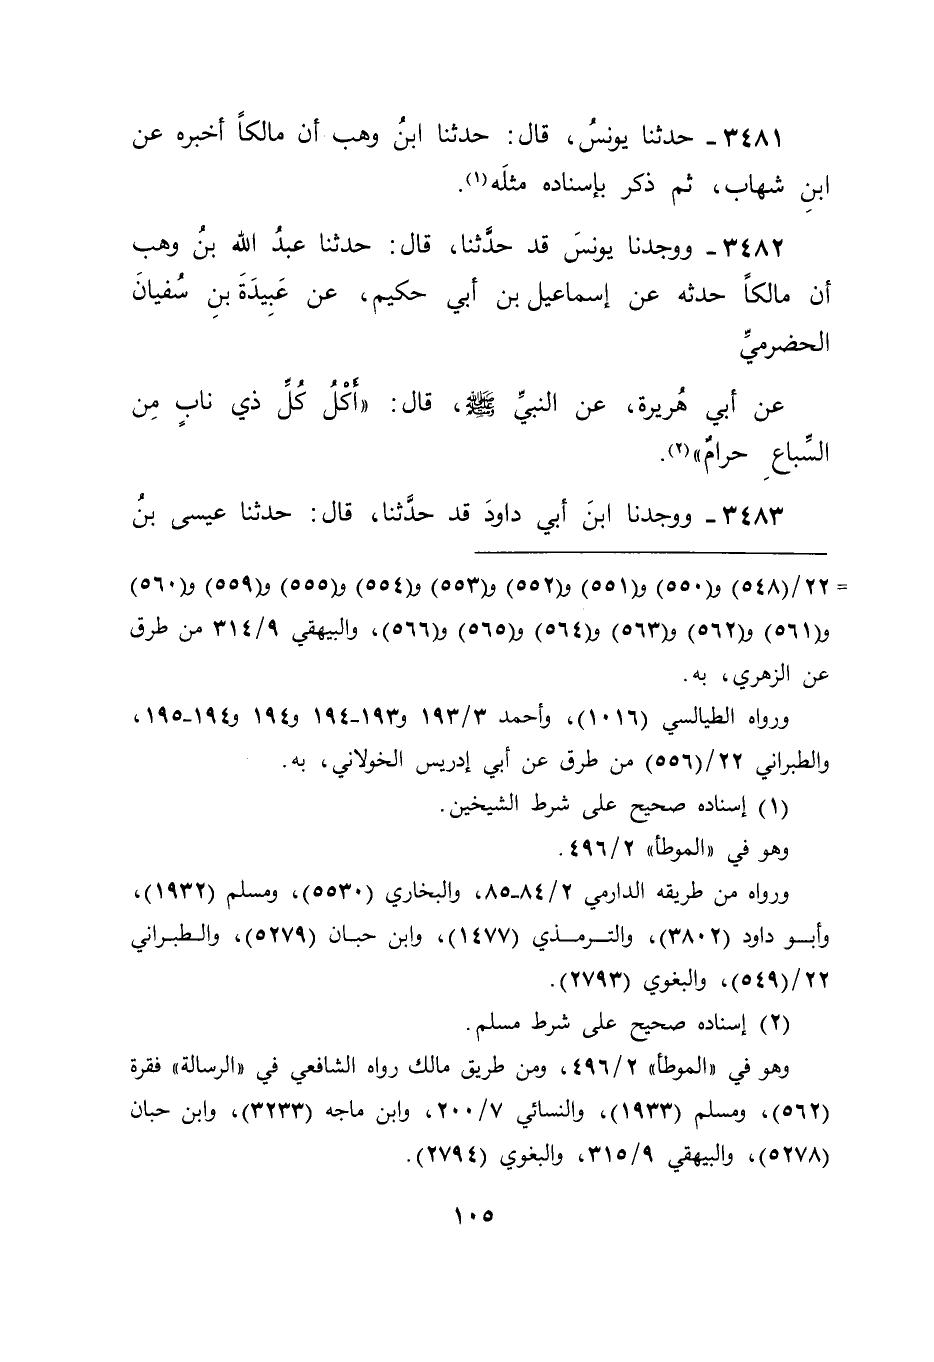 ٣٤٨١ ـ حدثنا يونسُ، قال: حدثنا ابنُ وهب أن مالكاً أخبره عن
ابنِ شهاب، ثم ذكر بإسناده مثلَه(١).
٣٤٨٢ ـ ووجدنا يونسَ قد حدَّثنا، قال: حدثنا عبدُ الله بنُ وهب
أن مالكاً حدثه عن إسماعيل بن أبي حكيم، عن عَبِيدَةَ بنِ سُفيانَ
الحضرميِّ
عن أبي هُريرة، عن النبيِّ ﷺ، قال: «أَكْلُ كُلِّ ذي نابٍ مِن
السِّباعِ حرامٌ»(٢).
٣٤٨٣ ـ ووجدنا ابنَ أبي داودَ قد حدَّثنا، قال: حدثنا عيسى بنُ
= ٢٢/(٥٤٨) و(٥٥٠) و(٥٥١) و(٥٥٢) و(٥٥٣) و(٥٥٤) و(٥٥٥) و(٥٥٩) و(٥٦٠)
و(٥٦١) و(٥٦٢) و(٥٦٣) و(٥٦٤) و(٥٦٥) و(٥٦٦)، والبيهقي ٣١٤/٩ من طرق
عن الزهري، به.
ورواه الطيالسي (١٠١٦)، وأحمد ١٩٣/٣ و١٩٣-١٩٤ و١٩٤ و١٩٤-١٩٥،
والطبراني ٢٢/(٥٥٦) من طرق عن أبي إدريس الخولاني، به.
(١) إسناده صحيح على شرط الشيخين.
وهو في «الموطأ» ٤٩٦/٢.
ورواه من طريقه الدارمي ٨٤/٢-٨٥، والبخاري (٥٥٣٠)، ومسلم (١٩٣٢)،
وأبو داود (٣٨٠٢)، والترمذي (١٤٧٧)، وابن حبان (٥٢٧٩)، والطبراني
٢٢/(٥٤٩)، والبغوي (٢٧٩٣).
(٢) إسناده صحيح على شرط مسلم.
وهو في «الموطأ» ٤٩٦/٢، ومن طريق مالك رواه الشافعي في «الرسالة» فقرة
(٥٦٢)، ومسلم (١٩٣٣)، والنسائي ٢٠٠/٧، وابن ماجه (٣٢٣٣)، وابن حبان
(٥٢٧٨)، والبيهقي ٣١٥/٩، والبغوي (٢٧٩٤).
١٠٥